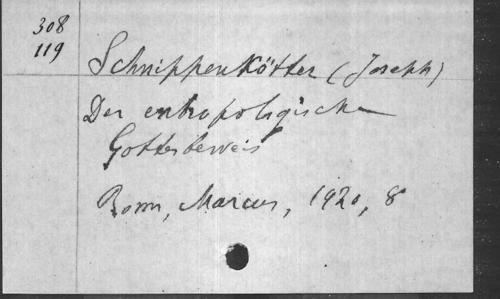 308
119
Schnippenkötter (Joseph)
Der entropologische
Gottesbeweis
Bonn, Marcus, 1920, 8